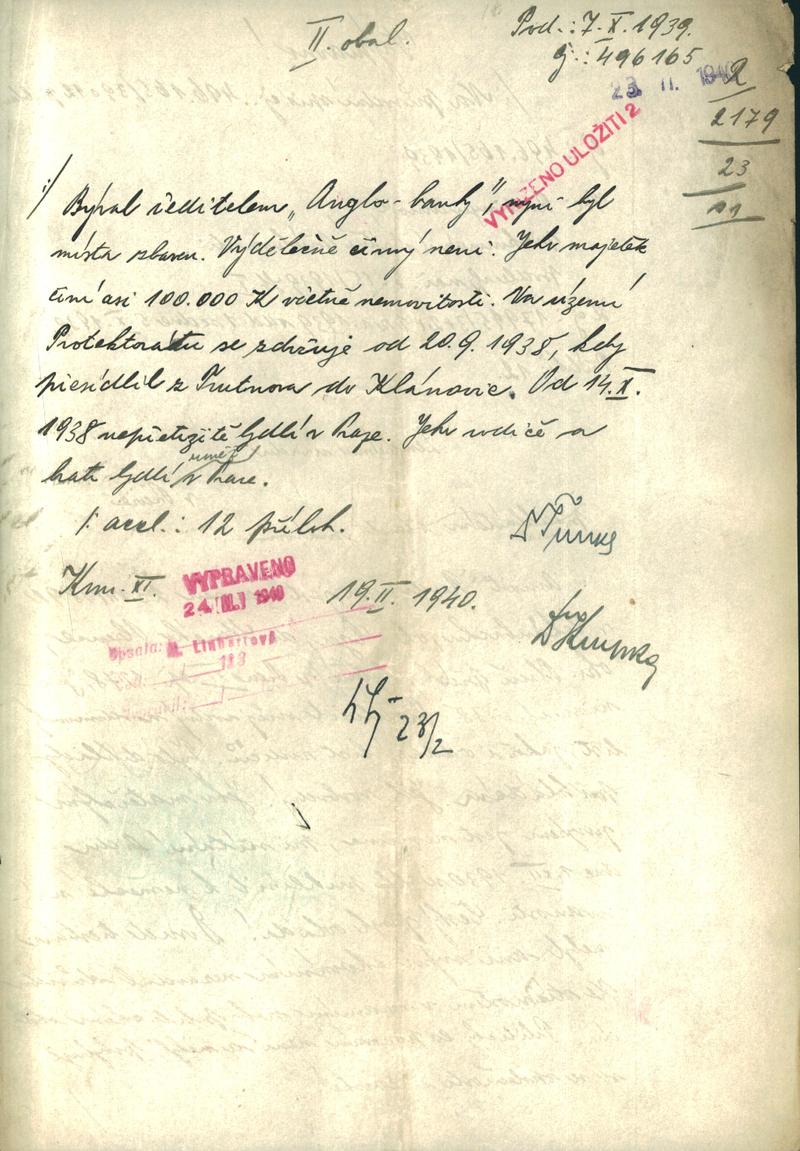 II. obal.
Pod.: 7.X.1939.
Čj.: 496165
23. II. 1940
R
2179
23
A1
VYŘÍZENO ULOŽITI 2
:/ Býval ředitelem „Anglo-banky", nyní byl
místa zbaven. Výdělečně činný není. Jeho majetek
činí asi 100.000 K včetně nemovitosti. Na území
Protektorátu se zdržuje od 20.9.1938, kdy
přesídlil z Trutnova do Klánovic. Od 14.X.
1938 nepřetržitě bydlí v Praze. Jeho rodiče a
bratr bydlí v Praze.
/: accl.: 12 příloh.
Km. XI.
VYPRAVENO
24. II. 1940
19.II. 1940.
Opsala: M. Linhartová
113
23/2